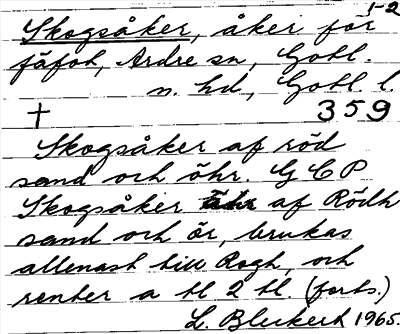 1-2
Skogsåker, åker för
fäfot, Ardre sn, Gotl.
n. hd, Gotl. l.
† 359
Skogsåker af röd
sand och öhr. G C P
Skogsåker af Rödh
sand och ör, brukas
allenast till Rogh, och
renter a tl 2 tl. (forts.)
L. Bleckert 1965.